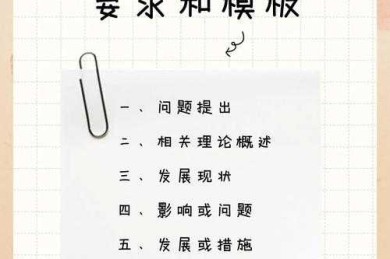 要求和模板
一、问题提出
二、相关理论概述
三、发展现状
四、影响或问题
五、发展或措施